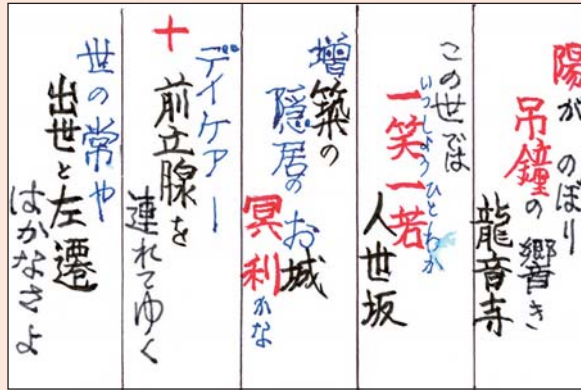 陽が のぼり
吊鐘の響き
龍音寺
この世では
いっしょうひとわか
一笑一若
人世坂
増築の
隠居のお城
冥利かな
デイケアー
十 前立腺を
連れてゆく
世の常や
出世と左遷
はかなさよ